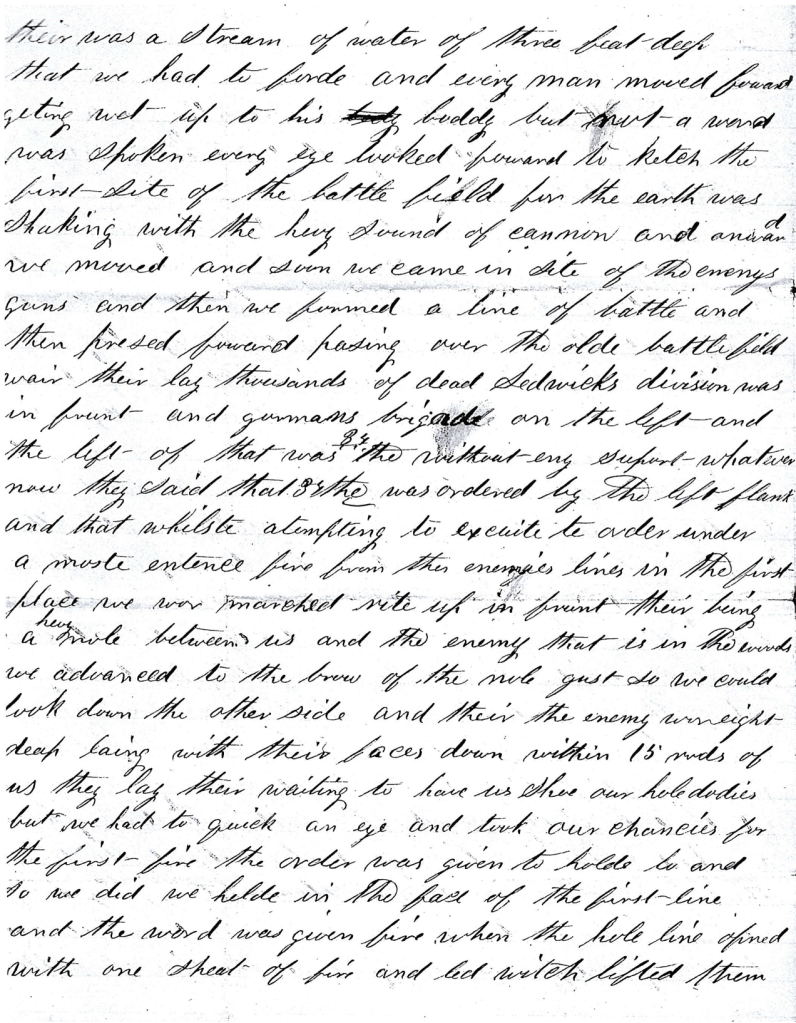 their was a stream of water of three feat deep
that we had to forde and every man moved foward
geting wet up to his body boddy but not a word
was spoken every eye looked foward to ketch the
first site of the battle field for the earth was
shaking with the hevy sound of cannon and onward
we moved and soon we came in site of the enemys
guns and then we formed a line of battle and
then presed foward pasing over the olde battlefield
wair their lay thousands of dead Sedwicks division was
in frunt and gormans brigade on the left and
the left of that was the 34 without eny suport whatever
now they said that 34 the was ordered by the left flank
and that whilste atempting to excuite te order under
a moste entence fire from the enemies lines in the first
place we wor marched rite up in frunt their being
a hevy nole between us and the enemy that is in the woods
we advanced to the brow of the nole gust so we could
look down the other side and their the enemy wor eight
deap laing with their faces down within 15 rods of
us they lay their waiting to have us shoe our hole bodies
but we had to quick an eye and took our chancies for
the first fire the order was given to holde lo and
so we did we helde in the face of the first line
and the word was given fire when the hole line opined
with one sheat of fire and led witch lifted them